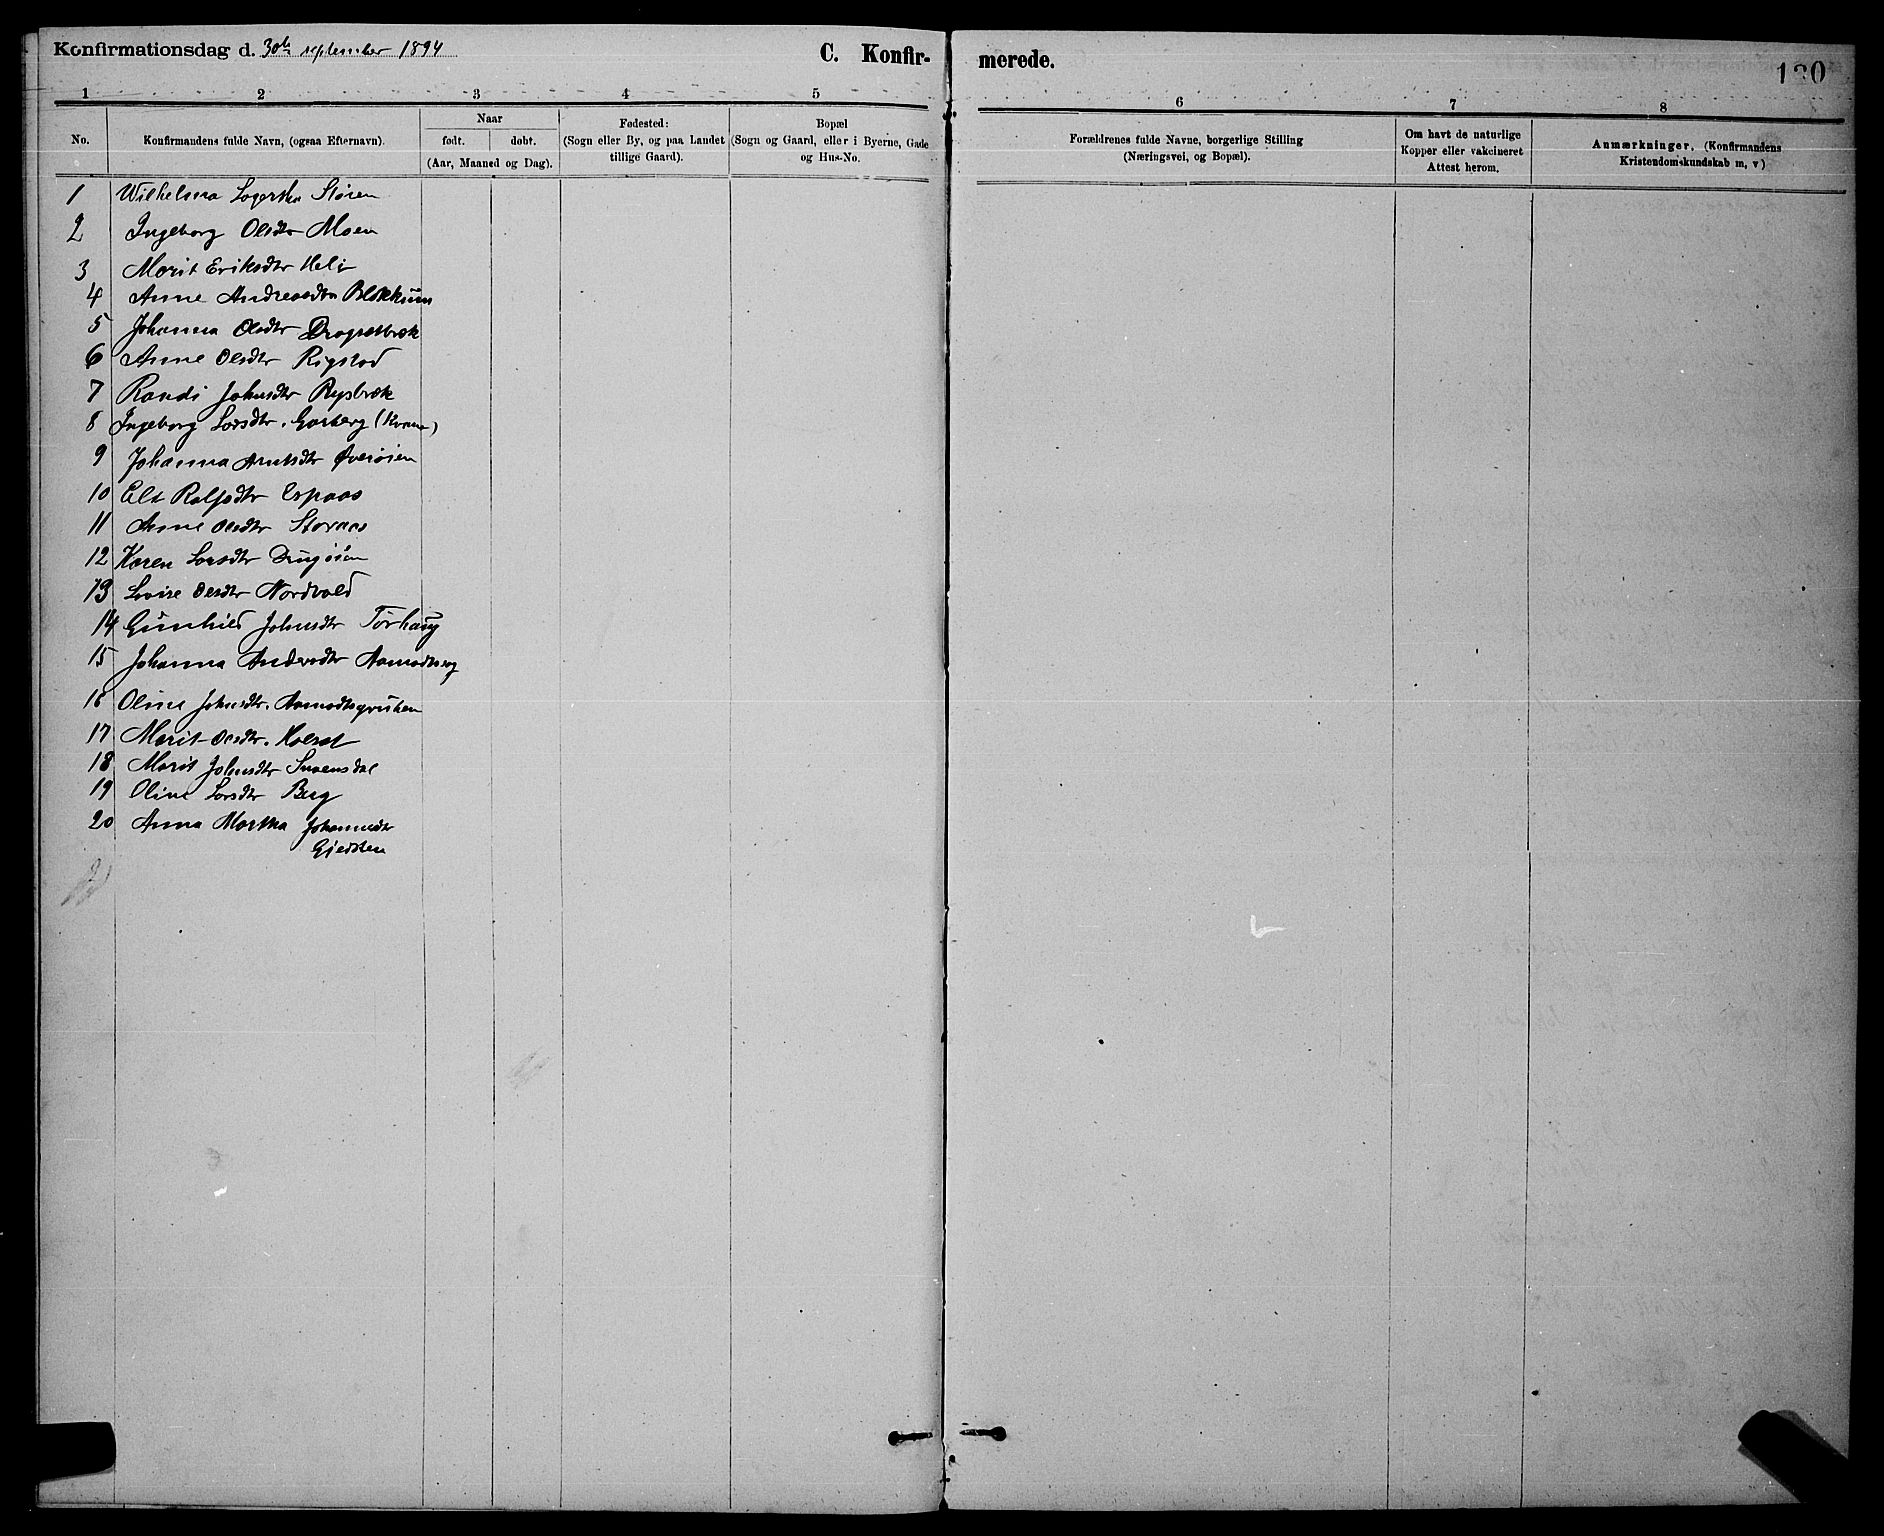 Konfirmationsdag d. 30te september 1894
C. Konfir-
merede.
130
1 2 3 4 5 6 7 8
No.
Konfirmandens fulde Navn, (ogsaa Efternavn).
Naar
født. døbt.
(Aar, Maaned og Dag).
Fødested:
(Sogn eller By, og paa Landet
tillige Gaard).
Bopæl
(Sogn og Gaard, eller i Byerne, Gade
og Hus-No.
Forældrenes fulde Navne, borgerlige Stilling
(Næringsvei, og Bopæl).
Om havt de naturlige
Kopper eller vakcineret
Attest herom.
Anmærkninger. (Konfirmandens
Kristendomskundskab m, v)
1 Wilhelma Lagertha Støren
2 Ingeborg Olsdtr Moen
3 Marit Eriksdtr Heli
4 Anne Andreasdtr Blokkum
5 Johanna Olsdtr Dragsetbræk
6 Anne Olsdtr Rigstad
7 Randi Johnsdtr Rysbræk
8 Ingeborg Larsdtr. Garberg
9 Johanna Arntsdtr Øverøien
10 Rolfsdtr Espaas
11 Anne Olsdtr Storaas
12 Karen Larsdtr Drugøien
13 Lovise Olsdtr Nordvold
14 Gunhild Johnsdtr Tørhaug
15 Johanna Andersdtr Aamodtsvg
16 Oline Johnsdtr. Aamodtsgruben
17 Marit Olsdtr.
18 Marit Johnsdtr Svaensdal
19 Oline Larsdtr Berg
20 Anna Martha Johannesdtr
Gjedsten